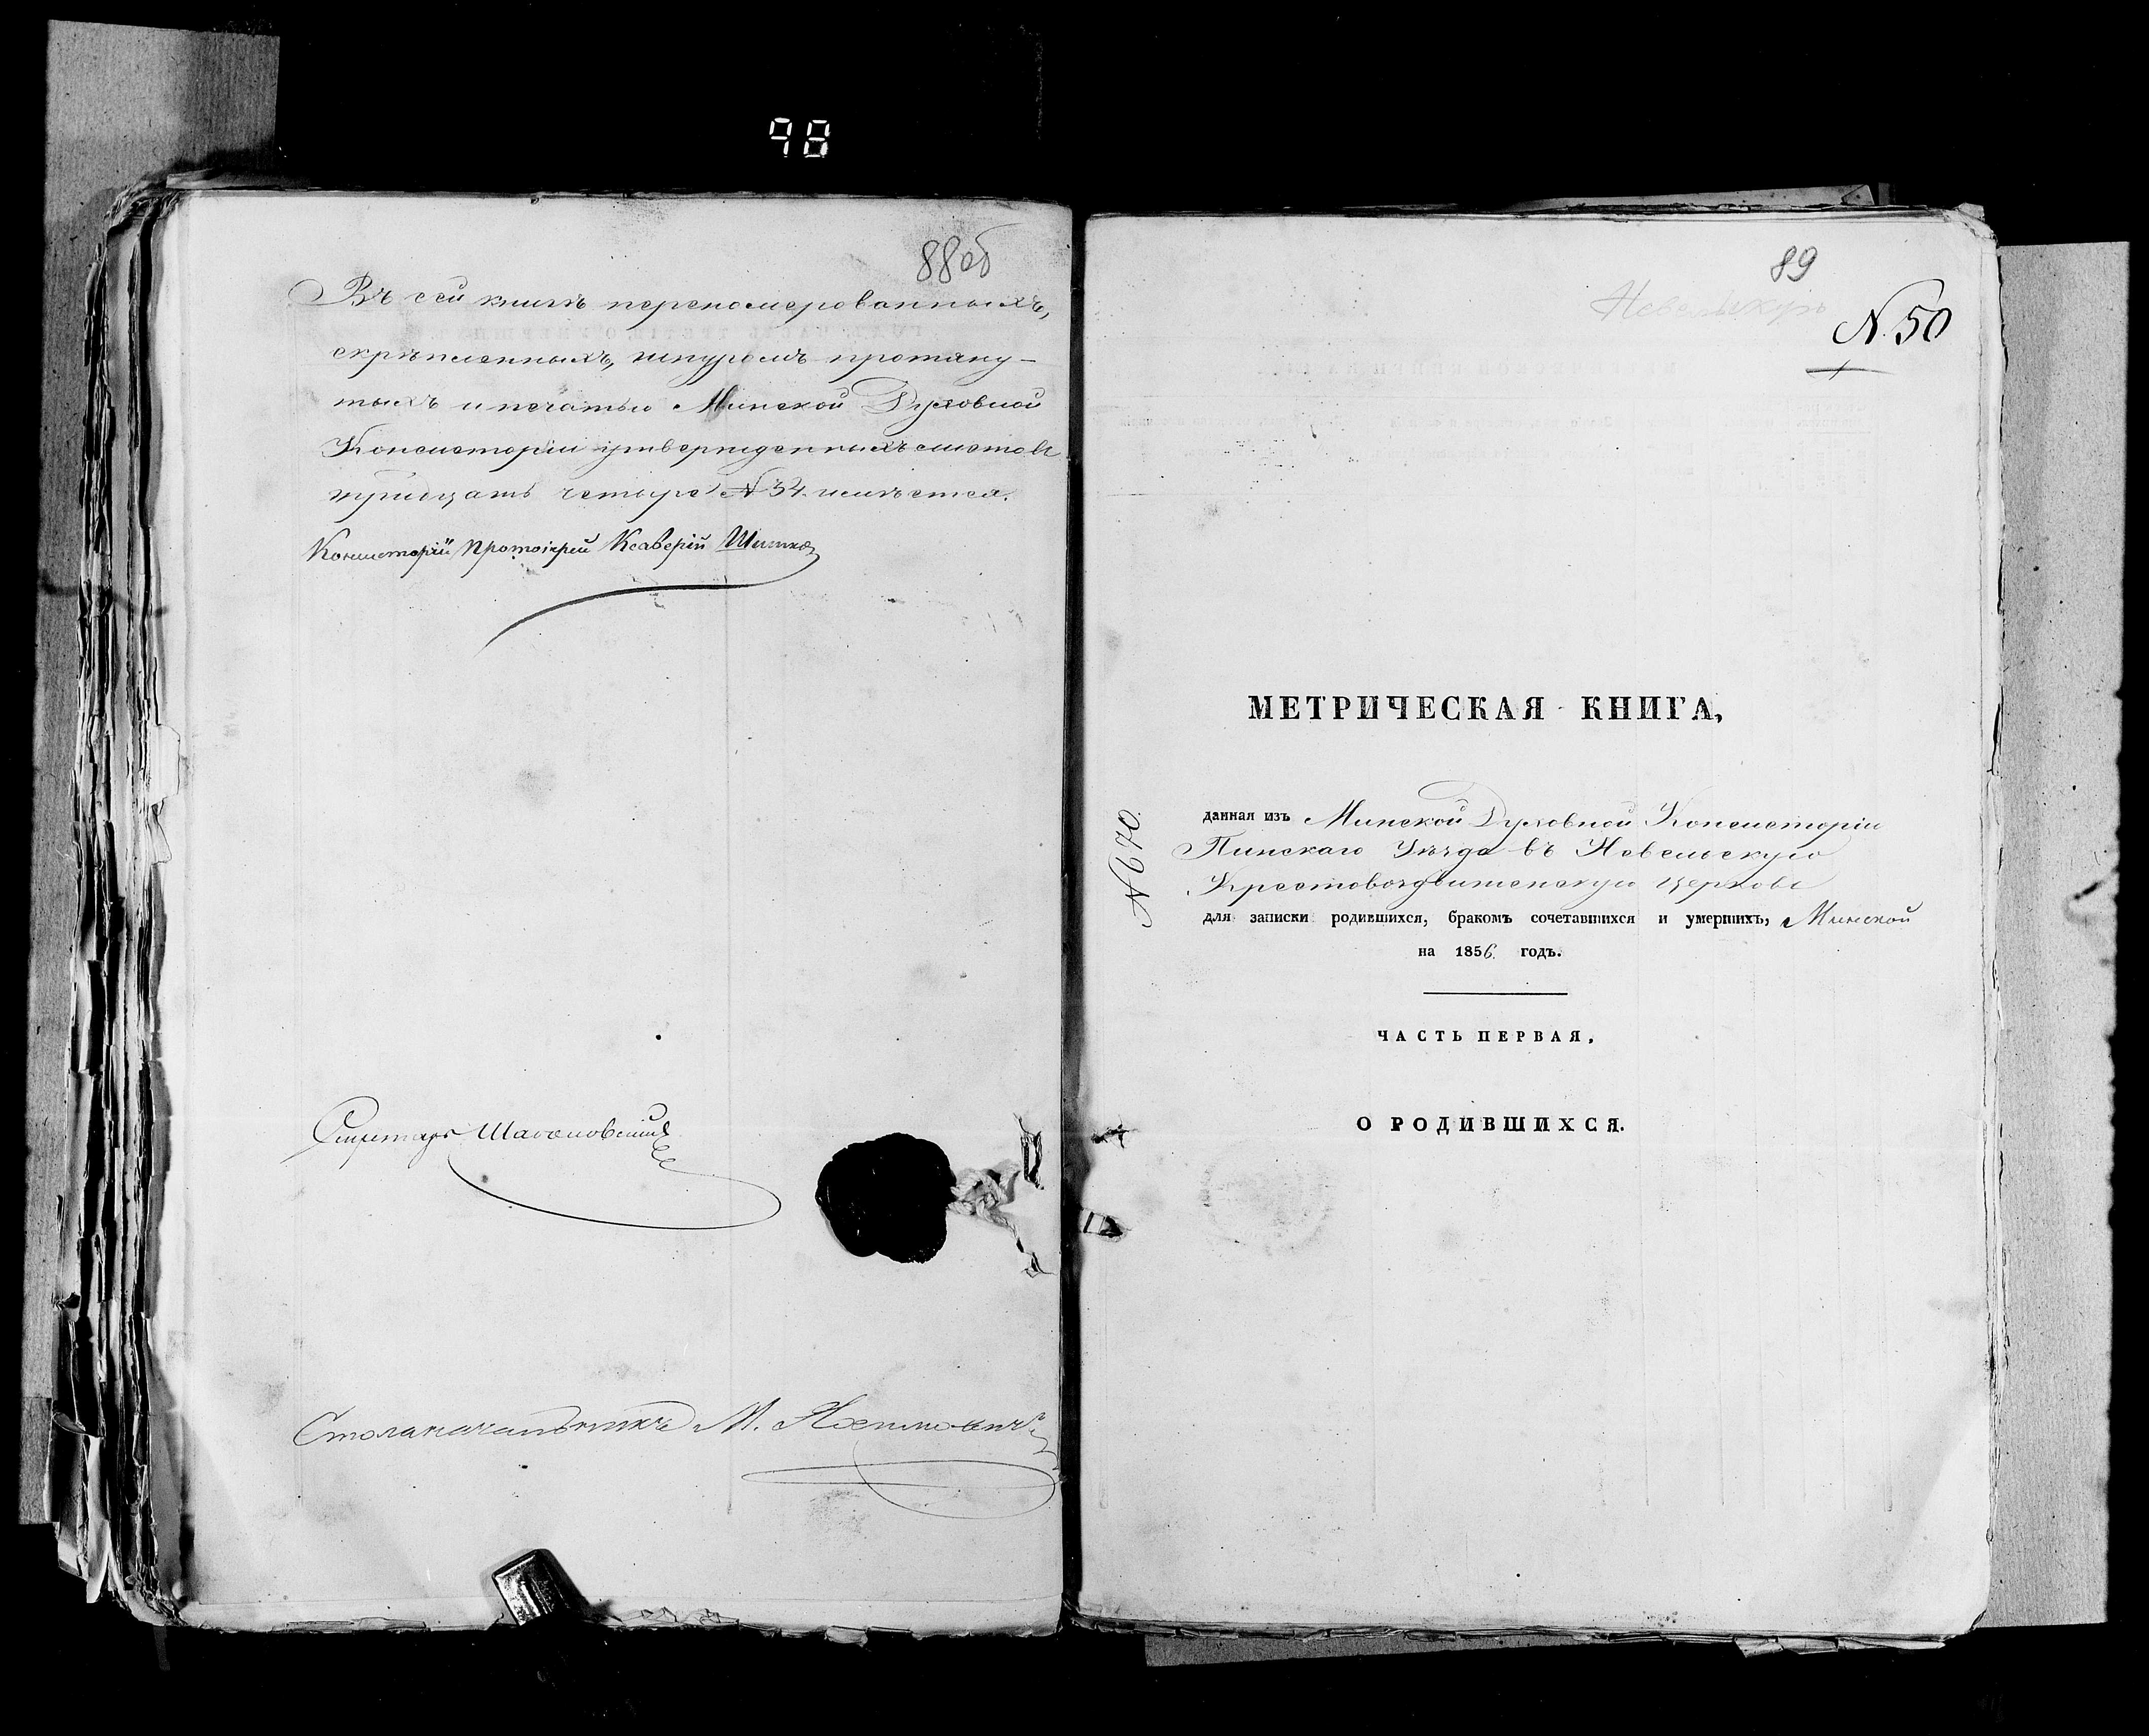 98
88об
Въ сей книгѣ переномерованныхъ,
скрѣпленныхъ, шнуромъ протяну-
тыхъ и печатью Минской Духовной
Консисторіи утвержденныхъ листовъ
тридцать четыре N 34. имѣется.
Консисторіи Протоіерей Ксаверій
Секретарь
Столоначальникъ М.
89
Невельскую
N. 50
МЕТРИЧЕСКАЯ КНИГА,
N 670.
данная изъ Минской Духовной Консисторіи
Пинскаго Уѣзда въ Невельскую
Крестовоздвиженскую церковь
для записки родившихся, бракомъ сочетавшихся и умершихъ, Минской
на 1856. годъ.
ЧАСТЬ ПЕРВАЯ,
О РОДИВШИХСЯ.